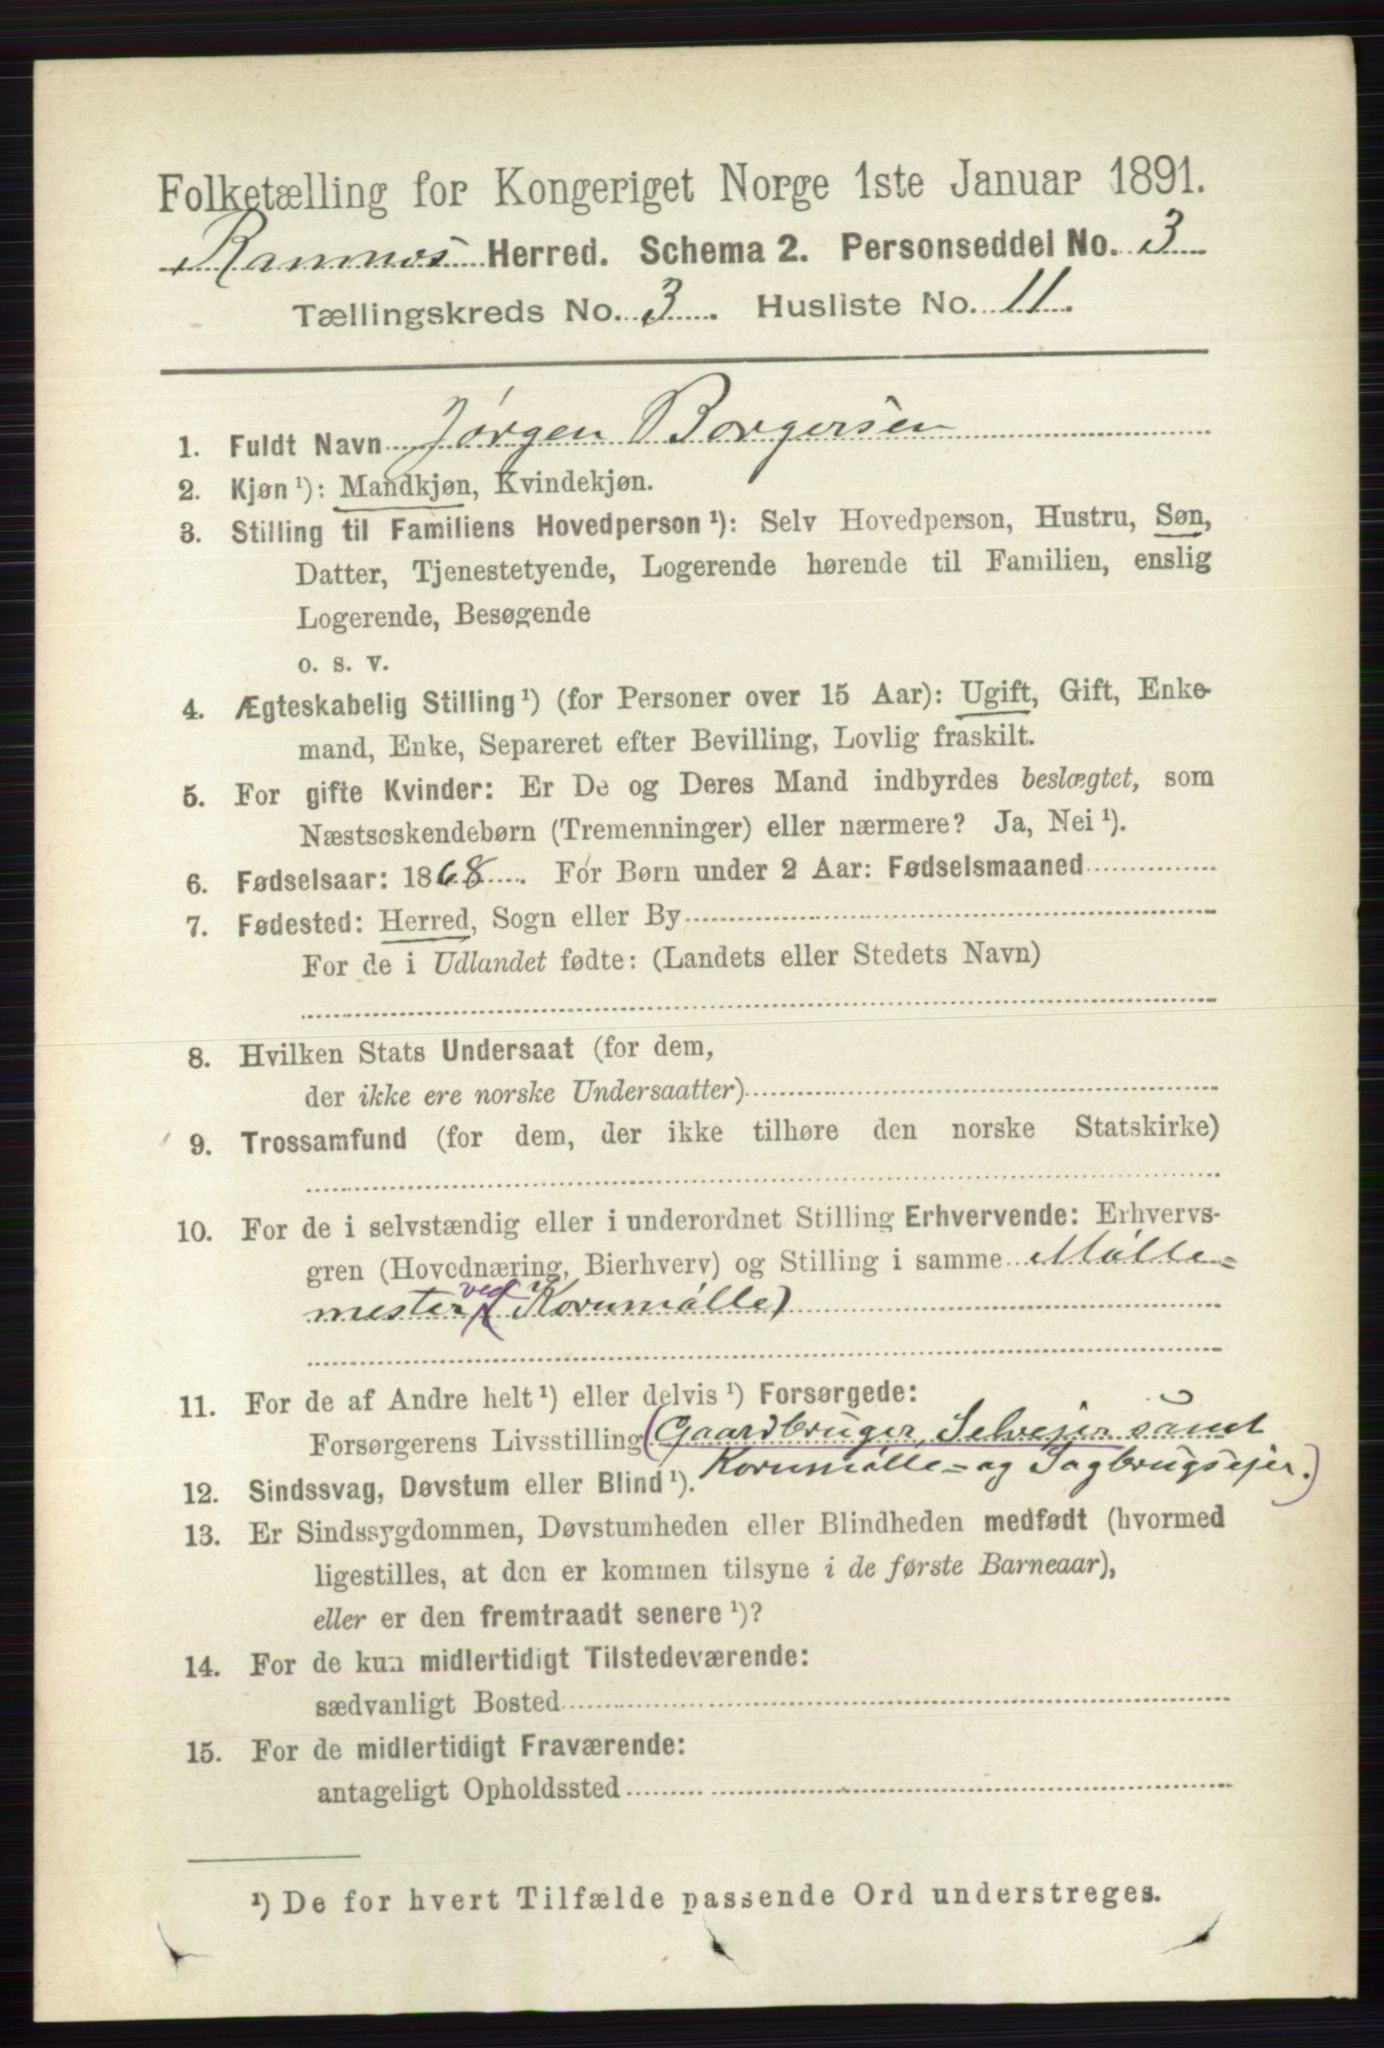 Folketælling for Kongeriget Norge 1ste Januar 1891.
Ramnes Herred. Schema 2. Personseddel No. 3
Tællingskreds No. 3. Husliste No. 11.
1. Fuldt Navn Jørgen Borgersen
2. Kjøn ¹): Mandkjøn, Kvindekjøn.
3. Stilling til Familiens Hovedperson ¹): Selv Hovedperson, Hustru, Søn,
Datter, Tjenestetyende, Logerende hørende til Familien, enslig
Logerende, Besøgende
o. s. v.
4. Ægteskabelig Stilling ¹) (for Personer over 15 Aar): Ugift, Gift, Enke-
mand, Enke, Separeret efter Bevilling, Lovlig fraskilt.
5. For gifte Kvinder: Er De og Deres Mand indbyrdes beslægtet, som
Næstsøskendebørn (Tremenninger) eller nærmere? Ja, Nei ¹).
6. Fødselsaar: 1868. For Børn under 2 Aar: Fødselsmaaned
7. Fødested: Herred, Sogn eller By
For de i Udlandet fødte: (Landets eller Stedets Navn)
8. Hvilken Stats Undersaat (for dem,
der ikke ere norske Undersaatter)
9. Trossamfund (for dem, der ikke tilhøre den norske Statskirke)
10. For de i selvstændig eller i underordnet Stilling Erhvervende: Erhvervs-
gren (Hovednæring, Bierhverv) og Stilling i samme Mølle=
mester ved (Kornmølle)
11. For de af Andre helt ¹) eller delvis ¹) Forsørgede:
Forsørgerens Livsstilling (Gaardbruger, Selveier samt
Kornmølle= og Sagbrugseier.)
12. Sindssvag, Døvstum eller Blind ¹).
13. Er Sindssygdommen, Døvstumheden eller Blindheden medfødt (hvormed
ligestilles, at den er kommen tilsyne i de første Barneaar),
eller er den fremtraadt senere ¹)?
14. For de kun midlertidigt Tilstedeværende:
sædvanligt Bosted
15. For de midlertidigt Fraværende:
antageligt Opholdssted
¹) De for hvert Tilfælde passende Ord understreges.